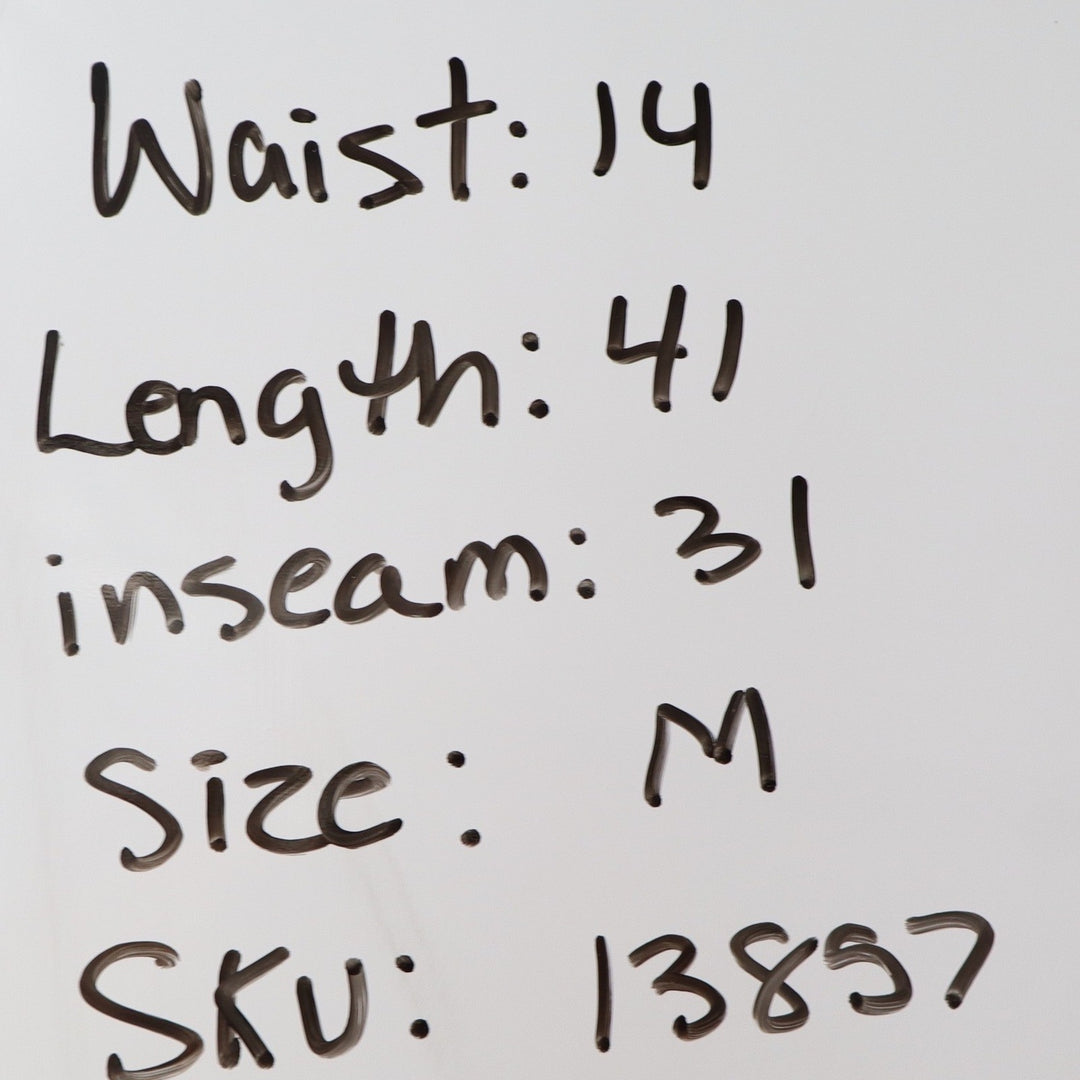 Waist: 14
Length: 41
inseam: 31
Size: M
SKU: 13857